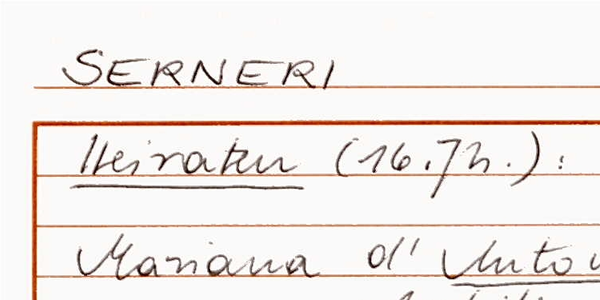 SERNERI
Heiraten (16.Jh.):
Mariana d'Anto